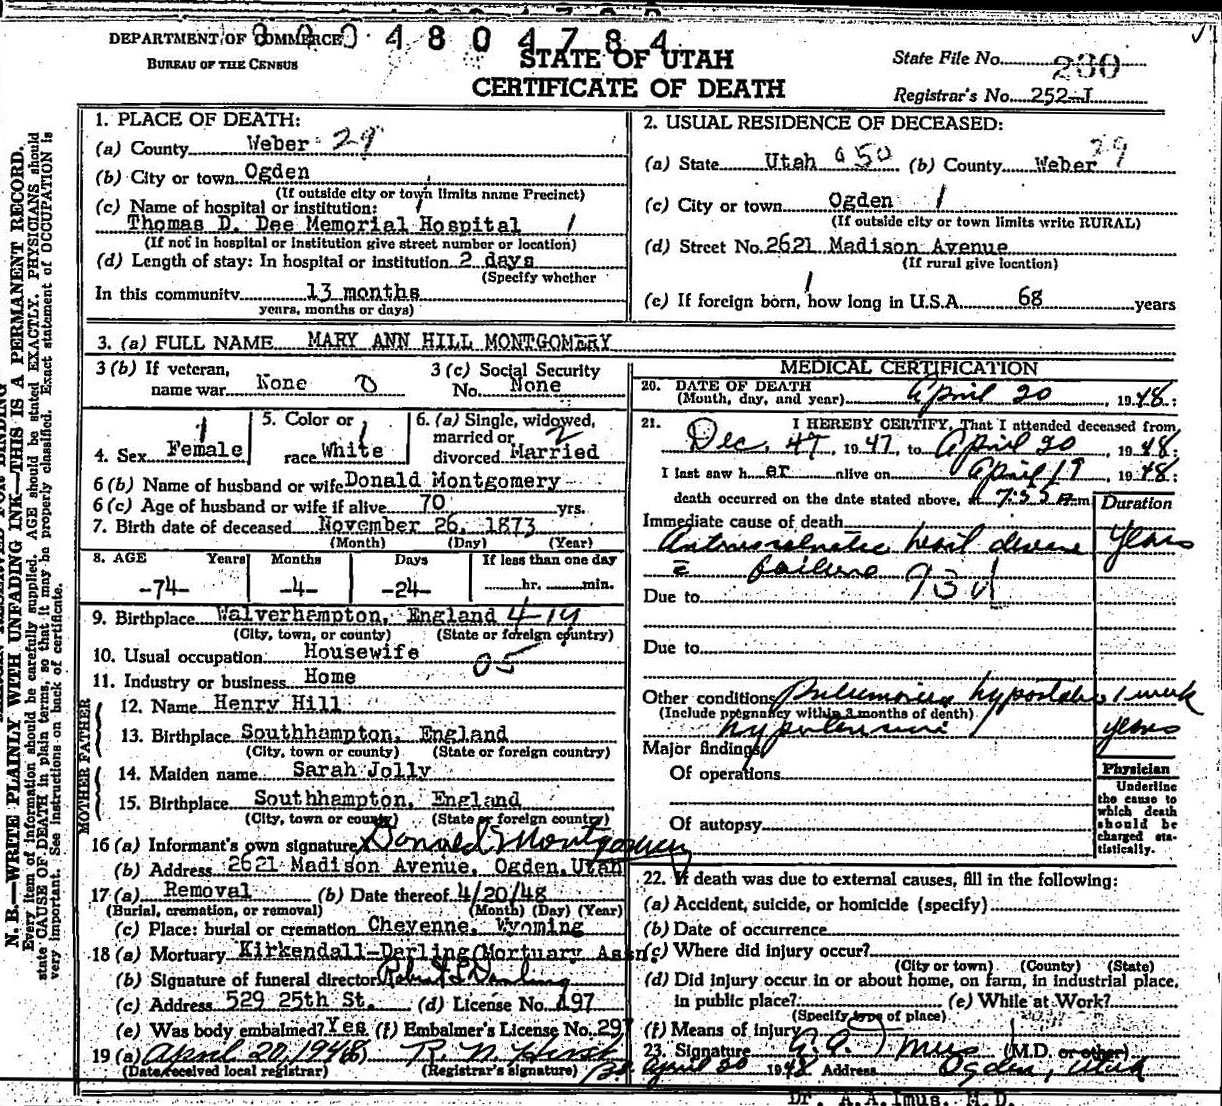 0004804784
DEPARTMENT OF COMMERCE
BUREAU OF THE CENSUS
STATE OF UTAH
CERTIFICATE OF DEATH
State File No. 280
Registrar's No. 252-J
N. B.—WRITE PLAINLY WITH UNFADING INK—THIS IS A PERMANENT RECORD.
Every item of information should be carefully supplied. AGE should be stated EXACTLY. PHYSICIANS should
state CAUSE OF DEATH in plain terms, so that it may be properly classified. Exact statement of OCCUPATION is
very important. See instructions on back of certificate.
1. PLACE OF DEATH:
(a) County Weber 29
(b) City or town Ogden
(If outside city or town limits name Precinct)
(c) Name of hospital or institution:
Thomas D. Dee Memorial Hospital 1
(If not in hospital or institution give street number or location)
(d) Length of stay: In hospital or institution 2 days
(Specify whether
In this community 13 months
years, months or days)
2. USUAL RESIDENCE OF DECEASED:
(a) State Utah 050 (b) County Weber 29
(c) City or town Ogden 1
(If outside city or town limits write RURAL)
(d) Street No. 2621 Madison Avenue
(If rural give location)
(e) If foreign born, how long in U.S.A. 68 years
3. (a) FULL NAME MARY ANN HILL MONTGOMERY
3 (b) If veteran, name war None 0
3 (c) Social Security No. None
4. Sex Female 1
5. Color or race White 1
6. (a) Single, widowed, married or divorced Married 2
6 (b) Name of husband or wife Donald Montgomery
6 (c) Age of husband or wife if alive 70 yrs.
7. Birth date of deceased November 26, 1873
(Month) (Day) (Year)
8. AGE Years Months Days If less than one day
-74- -4- -24- hr. min.
9. Birthplace Walverhampton, England 4-14
(City, town, or county) (State or foreign country)
10. Usual occupation Housewife 05
11. Industry or business Home
FATHER
12. Name Henry Hill
13. Birthplace Southhampton, England
(City, town or county) (State or foreign country)
MOTHER
14. Maiden name Sarah Jolly
15. Birthplace Southhampton, England
(City, town or county) (State or foreign country)
16 (a) Informant's own signature Donald S Montgomery
(b) Address 2621 Madison Avenue, Ogden, Utah
17 (a) Removal (b) Date thereof 4/20/48
(Burial, cremation, or removal) (Month) (Day) (Year)
(c) Place: burial or cremation Cheyenne, Wyoming
18 (a) Mortuary Kirkendall-Darling Mortuary Assn.
(b) Signature of funeral director Robert L Darling
(c) Address 529 25th St. (d) License No. A97
(e) Was body embalmed? Yes (f) Embalmer's License No. 297
19 (a) April 20, 1948 (b) R. N. Hirst
(Date received local registrar) (Registrar's signature)
MEDICAL CERTIFICATION
20. DATE OF DEATH
(Month, day, and year) April 20, 1948:
21. I HEREBY CERTIFY, That I attended deceased from
Dec. 47, 1947, to April 20, 1948:
I last saw her alive on April 19, 1948:
death occurred on the date stated above, at 7:55 A.m
Duration
Immediate cause of death
Arteriosclerotic heart disease years
c̄ failure 93d
Due to
Due to
Other conditions Pulmonary hypostasis 1 week
(Include pregnancy within 3 months of death)
hypertension years
Major findings
Of operations
Of autopsy
Physician
Underline
the cause to
which death
should be
charged sta-
tistically.
22. If death was due to external causes, fill in the following:
(a) Accident, suicide, or homicide (specify)
(b) Date of occurrence
(c) Where did injury occur?
(City or town) (County) (State)
(d) Did injury occur in or about home, on farm, in industrial place,
in public place? (e) While at Work?
(Specify type of place)
(f) Means of injury
23. Signature A. A. Imus (M.D. or other)
April 20 1948 Address Ogden, Utah
Dr. A.A.Imus, M.D.